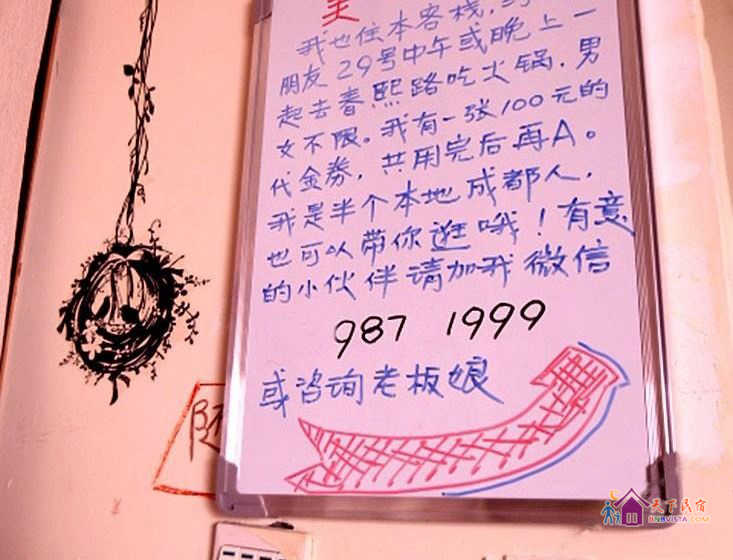 我也住本客栈,
朋友29号中午或晚上一
起去春熙路吃火锅,男
女不限。我有一张100元的
代金券,共用完后再A。
我是半个本地成都人,
也可以带你逛哦!有意
的小伙伴请加我微信
987 1999
或咨询老板娘
天下民宿
BNBVISTA.COM